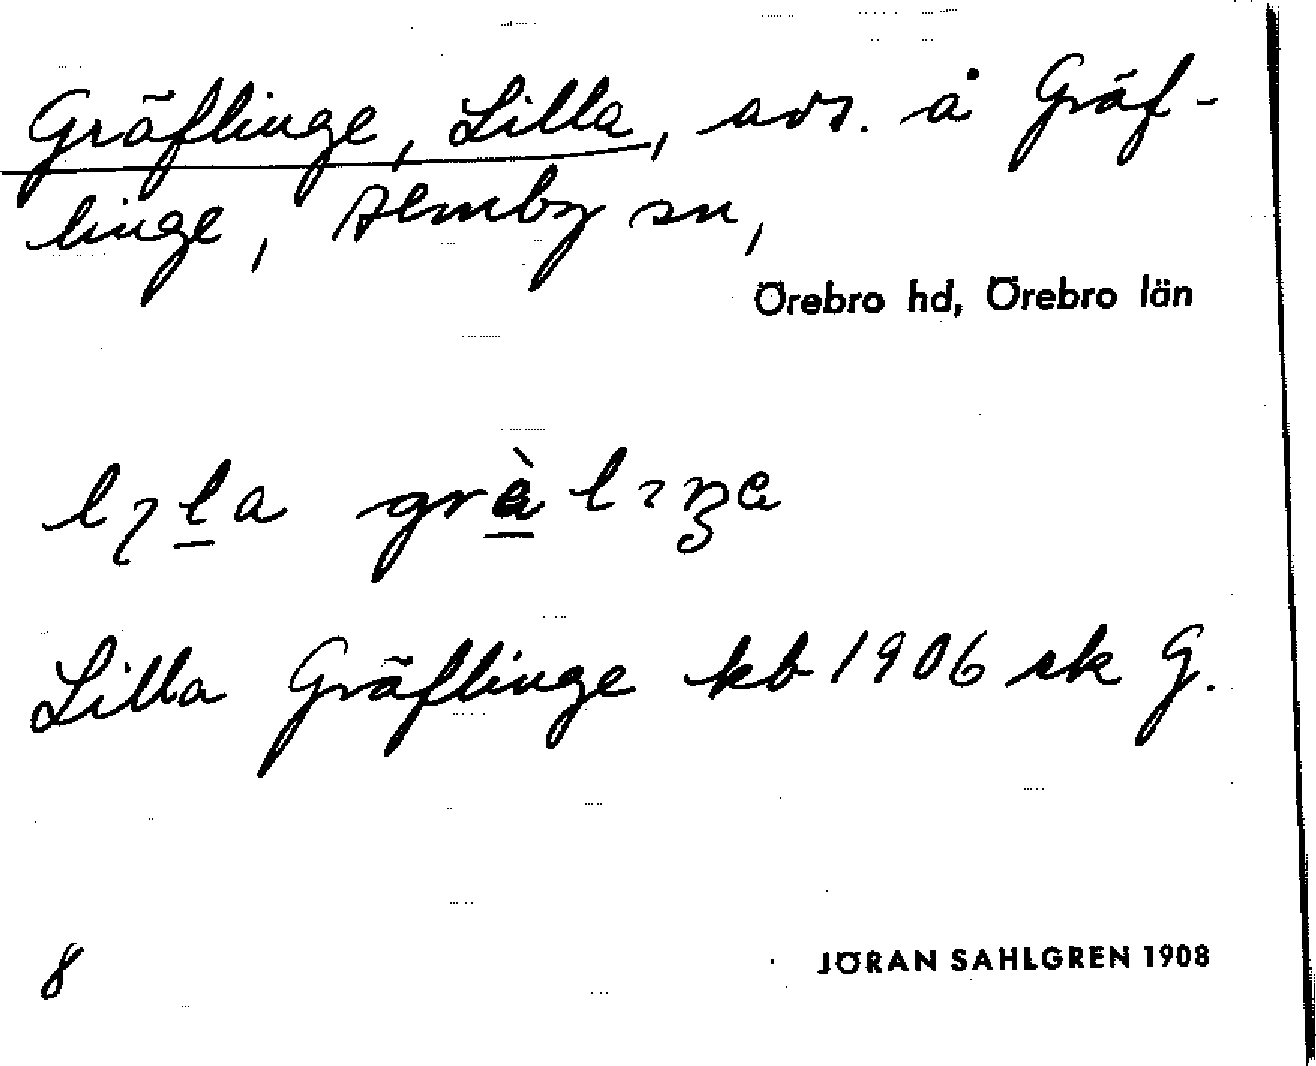 Gräflinge, Lilla, avs. å Gräf-
linge, Almby sn,
Örebro hd, Örebro län
Lilla Gräflinge kb 1906 sk G.
8
JÖRAN SAHLGREN 1908